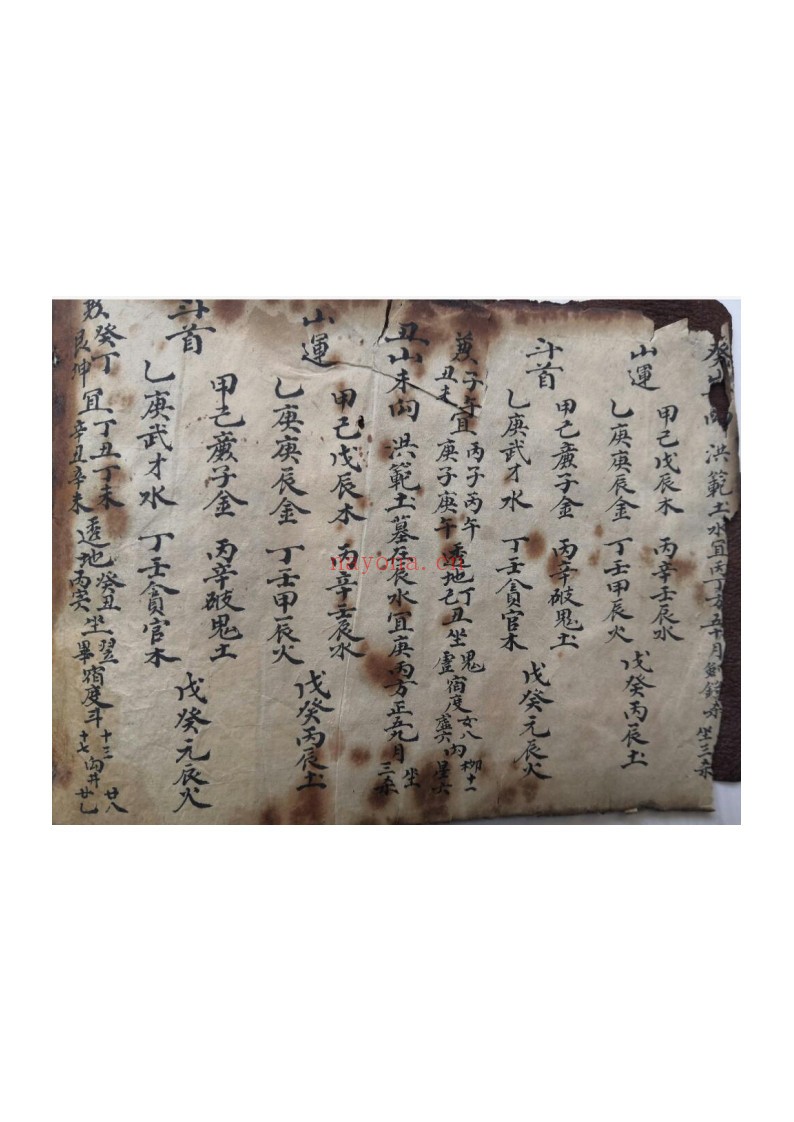 癸山 向 洪範土水宜丙丁方五十月 坐三杀
山運
甲己戊辰木 丙辛壬辰水
乙庚庚辰金 丁壬甲辰火 戊癸丙辰土
斗首
甲己廉子金 丙辛破鬼土
乙庚武才水 丁壬貪官木 戊癸元辰火
兼子午宜 丙子丙午 透地丁丑坐鬼 宿度 女八 柳十一
丑未 庚子庚午 己丑 虛 虛六 向 星六
丑山未向 洪範土墓在辰水宜庚丙方正五九月坐三杀
山運
甲己戊辰木 丙辛壬辰水
乙庚庚辰金 丁壬甲辰火 戊癸丙辰土
斗首
甲己廉子金 丙辛破鬼土
乙庚武才水 丁壬貪官木 戊癸元辰火
癸丁宜丁丑丁未 透地 癸丑坐翌 宿度斗 十三 向井 廿八
艮坤 辛丑辛未 丙寅 畢 十七 廿七
nayona.cn